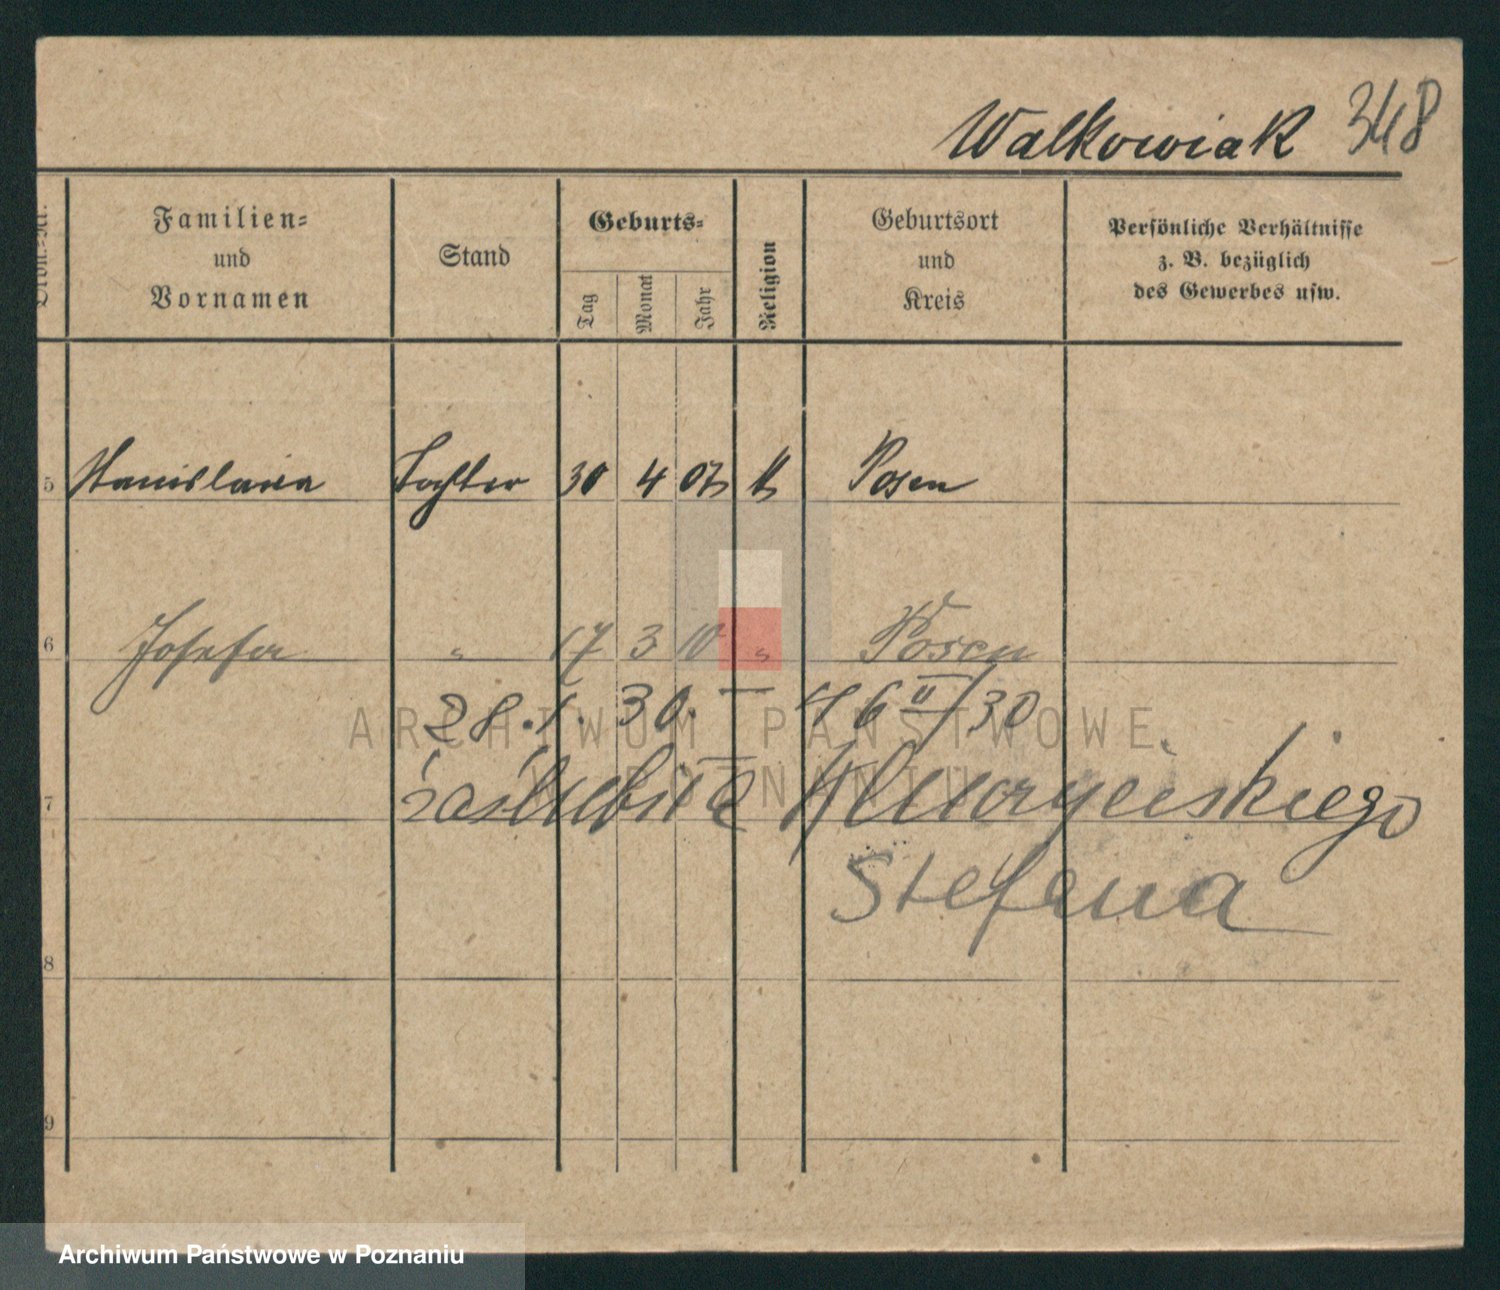 Walkowiak 348
Ordn.-Nr.
Familien-
und
Vornamen
Stand
Geburts-
Tag
Monat
Jahr
Religion
Geburtsort
und
Kreis
Persönliche Verhältnisse
z. B. bezüglich
des Gewerbes usw.
5 Stanislawa Tochter 30 4 07 k Posen
6 Josefa " 17 3 10 " Posen
28.1.30. 46 II/30
7 zaślubiła
Stefana
8
9
ARCHIWUM PAŃSTWOWE
W POZNANIU
Archiwum Państwowe w Poznaniu